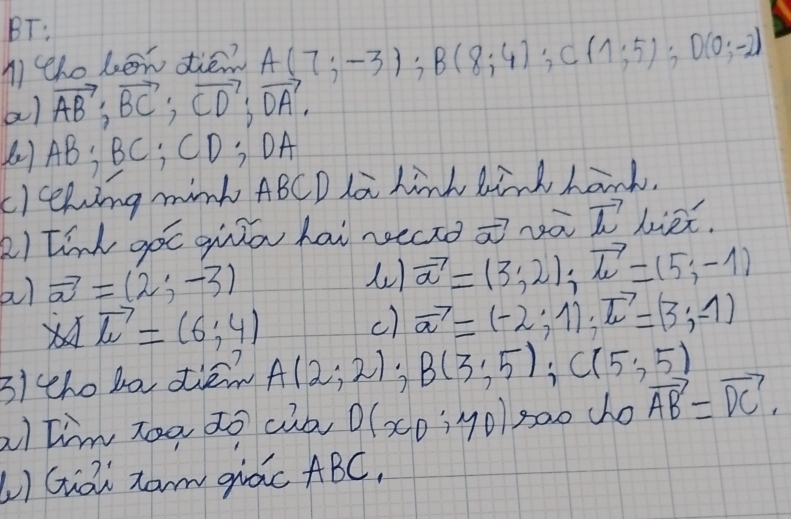 BT:
1) Cho bốn điểm A(7;-3); B(8;4); C(1;5); D(0;-2)
a) $\overrightarrow{AB}$; $\overrightarrow{BC}$; $\overrightarrow{CD}$; $\overrightarrow{DA}$.
b) AB; BC; CD; DA
c) Chứng minh ABCD là hình bình hành.
2) Tính góc giữa hai vectơ $\vec{a}$ và $\vec{b}$ biết.
a) $\vec{a}$ = (2;-3) b) $\vec{a}$ = (3;2); $\vec{b}$ = (5;-1)
$\vec{b}$ = (6;4) c) $\vec{a}$ = (-2;1); $\vec{b}$ = (3;-1)
3) Cho ba điểm A(2;2); B(3;5); C(5;5)
a) Tìm toạ độ của D(x_D; y_D) sao cho $\overrightarrow{AB}$ = $\overrightarrow{DC}$.
b) Giải tam giác ABC.